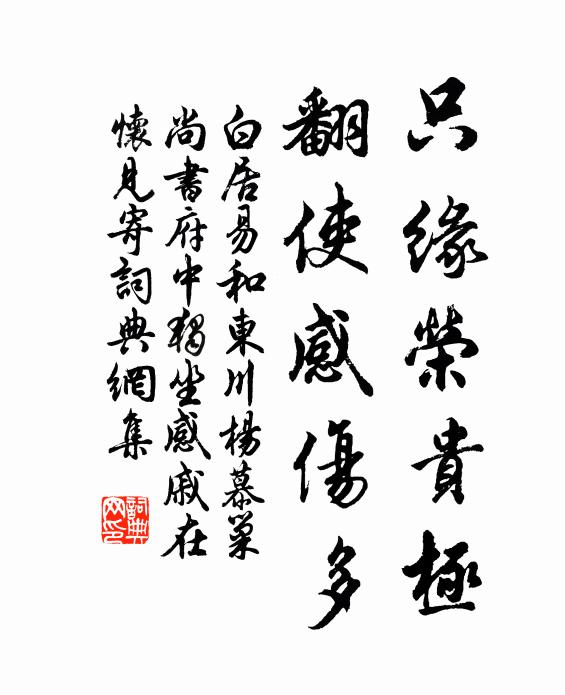 只緣榮貴極
翻使感傷多
白居易和東川楊慕巢
尚書府中獨坐感戚在
懷見寄詞典網集
詞典
网印